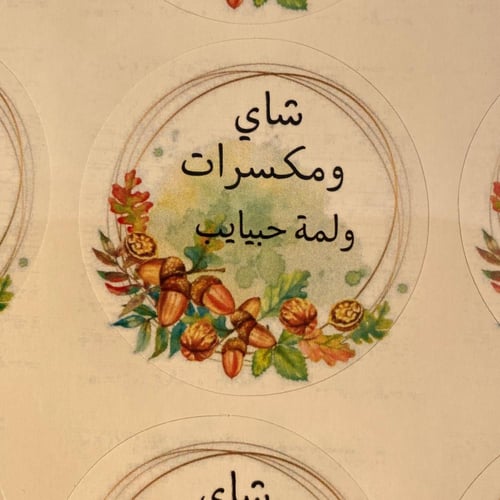 شاي
ومكسرات
ولمة حبيايب
شاي